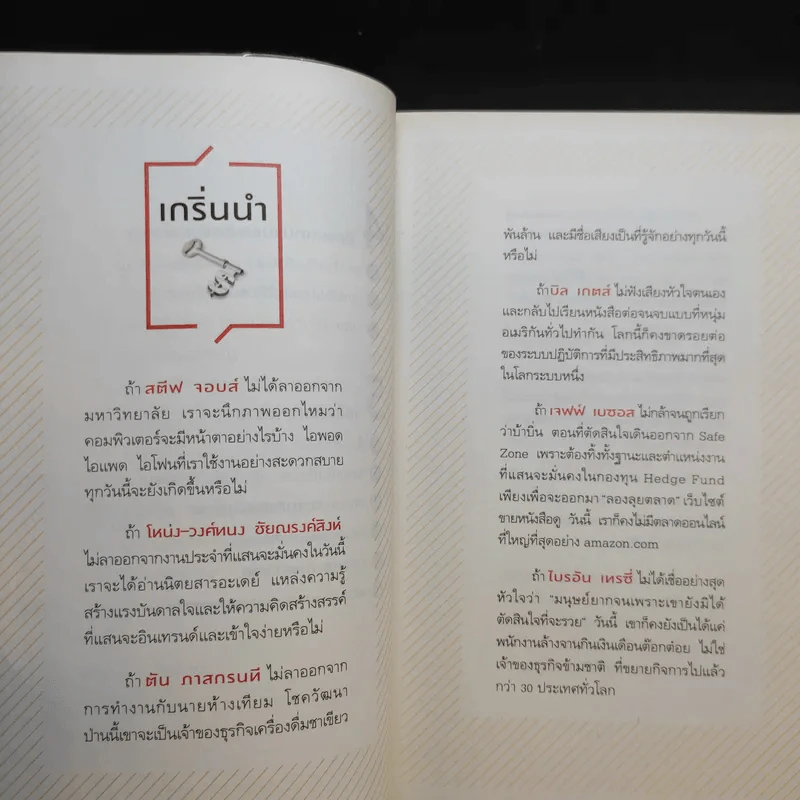 เกริ่นนำ
ถ้า สตีฟ จอบส์ ไม่ได้ลาออกจาก
มหาวิทยาลัย เราจะนึกภาพออกไหมว่า
คอมพิวเตอร์จะมีหน้าตาอย่างไรบ้าง ไอพอด
ไอแพด ไอโฟนที่เราใช้งานอย่างสะดวกสบาย
ทุกวันนี้จะยังเกิดขึ้นหรือไม่
ถ้า โหน่ง-วงศ์ทนง ชัยณรงค์สิงห์
ไม่ลาออกจากงานประจำที่แสนจะมั่นคงในวันนี้
เราจะได้อ่านนิตยสารอะเดย์ แหล่งความรู้
สร้างแรงบันดาลใจและให้ความคิดสร้างสรรค์
ที่แสนจะอินเทรนด์และเข้าใจง่ายหรือไม่
ถ้า ตัน ภาสกรนที ไม่ลาออกจาก
การทำงานกับนายห้างเทียม โชควัฒนา
ป่านนี้เขาจะเป็นเจ้าของธุรกิจเครื่องดื่มชาเขียว
พันล้าน และมีชื่อเสียงเป็นที่รู้จักอย่างทุกวันนี้
หรือไม่
ถ้าบิล เกตส์ ไม่ฟังเสียงหัวใจตนเอง
และกลับไปเรียนหนังสือต่อจนจบแบบที่หนุ่ม
อเมริกันทั่วไปทำกัน โลกนี้ก็คงขาดรอยต่อ
ของระบบปฏิบัติการที่มีประสิทธิภาพมากที่สุด
ในโลกระบบหนึ่ง
ถ้า เจฟฟ์ เบซอส ไม่กล้าจนถูกเรียก
ว่าบ้าบิ่น ตอนที่ตัดสินใจเดินออกจาก Safe
Zone เพราะต้องทิ้งทั้งฐานะและตำแหน่งงาน
ที่แสนจะมั่นคงในกองทุน Hedge Fund
เพียงเพื่อจะออกมา "ลองลุยตลาด" เว็บไซต์
ขายหนังสือดู วันนี้ เราก็คงไม่มีตลาดออนไลน์
ที่ใหญ่ที่สุดอย่าง amazon.com
ถ้า ไบรอัน เทรซี่ ไม่ได้เชื่ออย่างสุด
หัวใจว่า "มนุษย์ยากจนเพราะเขายังมิได้
ตัดสินใจที่จะรวย" วันนี้ เขาก็คงยังเป็นได้แค่
พนักงานล้างจานกินเงินเดือนต๊อกต๋อย ไม่ใช่
เจ้าของธุรกิจข้ามชาติ ที่ขยายกิจการไปแล้ว
กว่า 30 ประเทศทั่วโลก